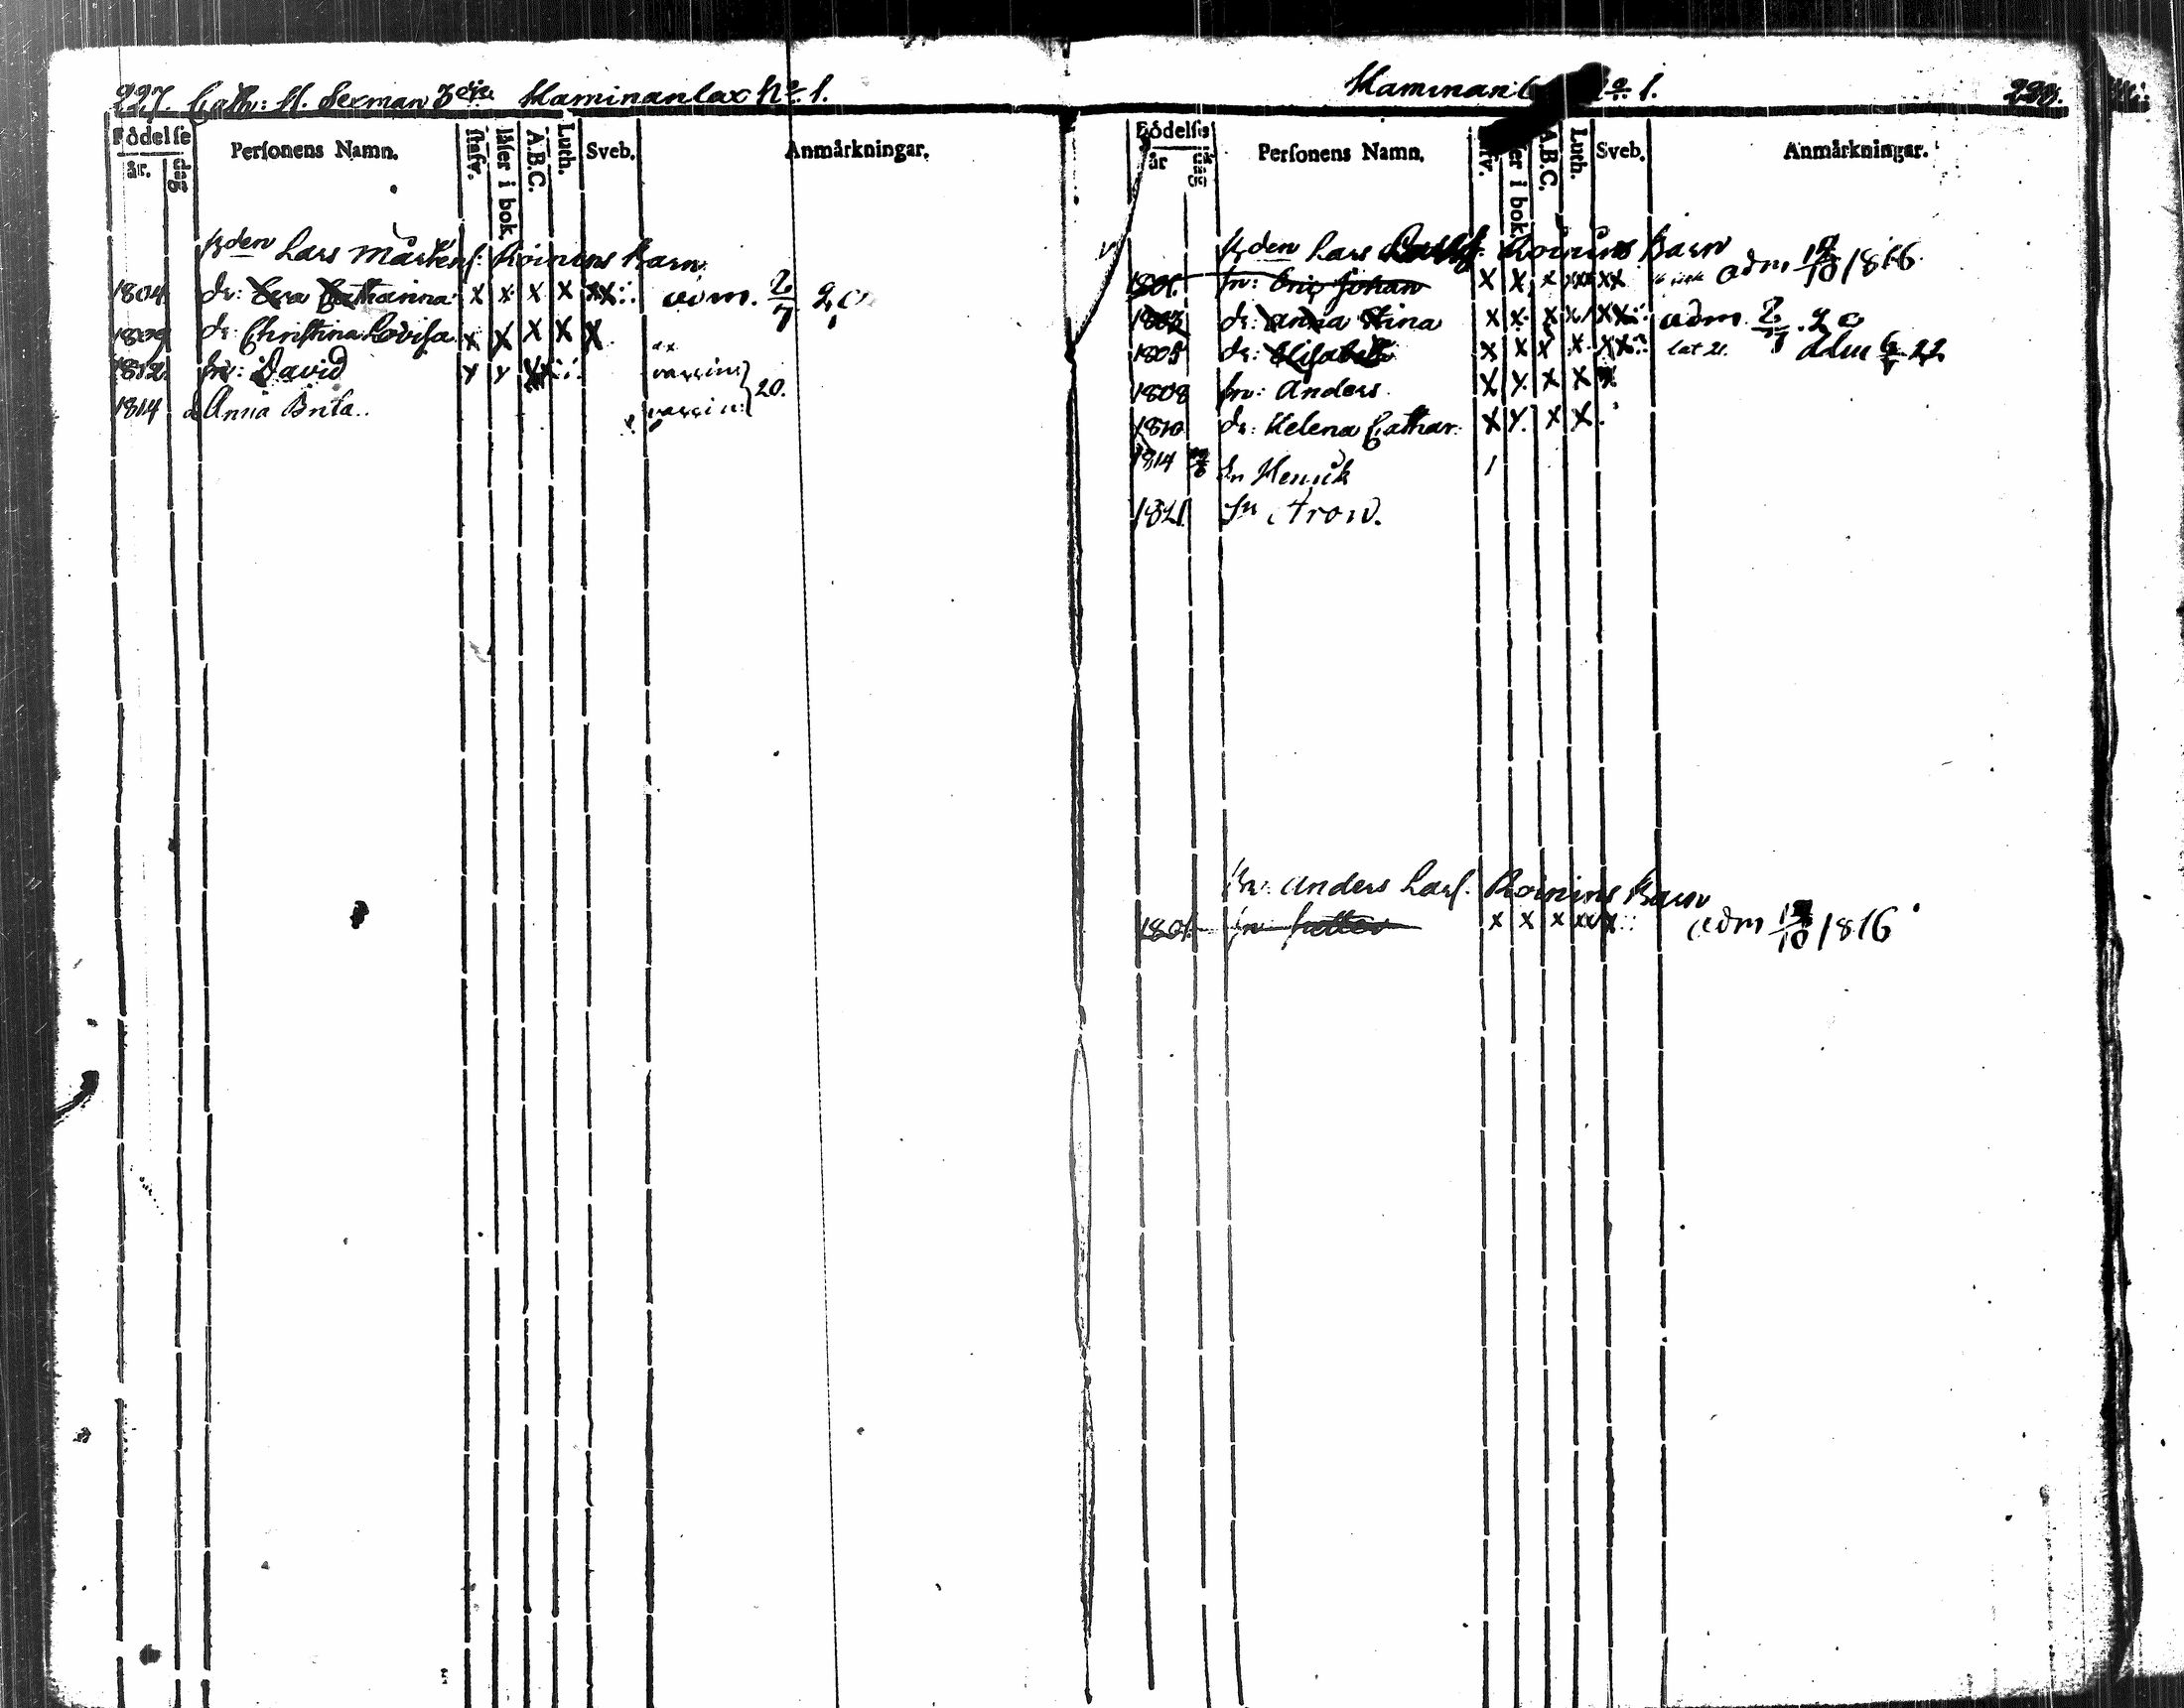 227. Cath: H. Sexman 3die Haminanlax No 1.
Födelse
år. dag
Personens Namn.
stafv. läser i bok. A.B.C. Luth. Sveb.
Anmärkningar.
Bden Lars Mårtens: Roinins Barn
1804 dr: Catharina x x x x xx adm. 2/7 20
1809 dr: Christina Lovisa x x x x x
1812 sn: David x x vaccin
1814 d Anna Brita.. vaccin: 20.
Haminanlax No 1.
Födelse
år dag
Personens Namn.
A.B.C. Luth. Sveb.
Anmärkningar.
Bden Lars Roinins Barn
1801. sn: Eric Johan x x x xx xx adm 10 1816.
1803 dr: Anna Stina x x x x xx adm. 2/7. 20
1805 dr: Elisabeth x x x x xx 22
1808 sn: Anders x x x x x
1810 dr: Helena Cathar: x x. x x.
1814 sn Henrik
1821 Sn Aron.
Bn: Anders Lars. Roinins Barn
1801. sn x x x xx x adm 10 1816